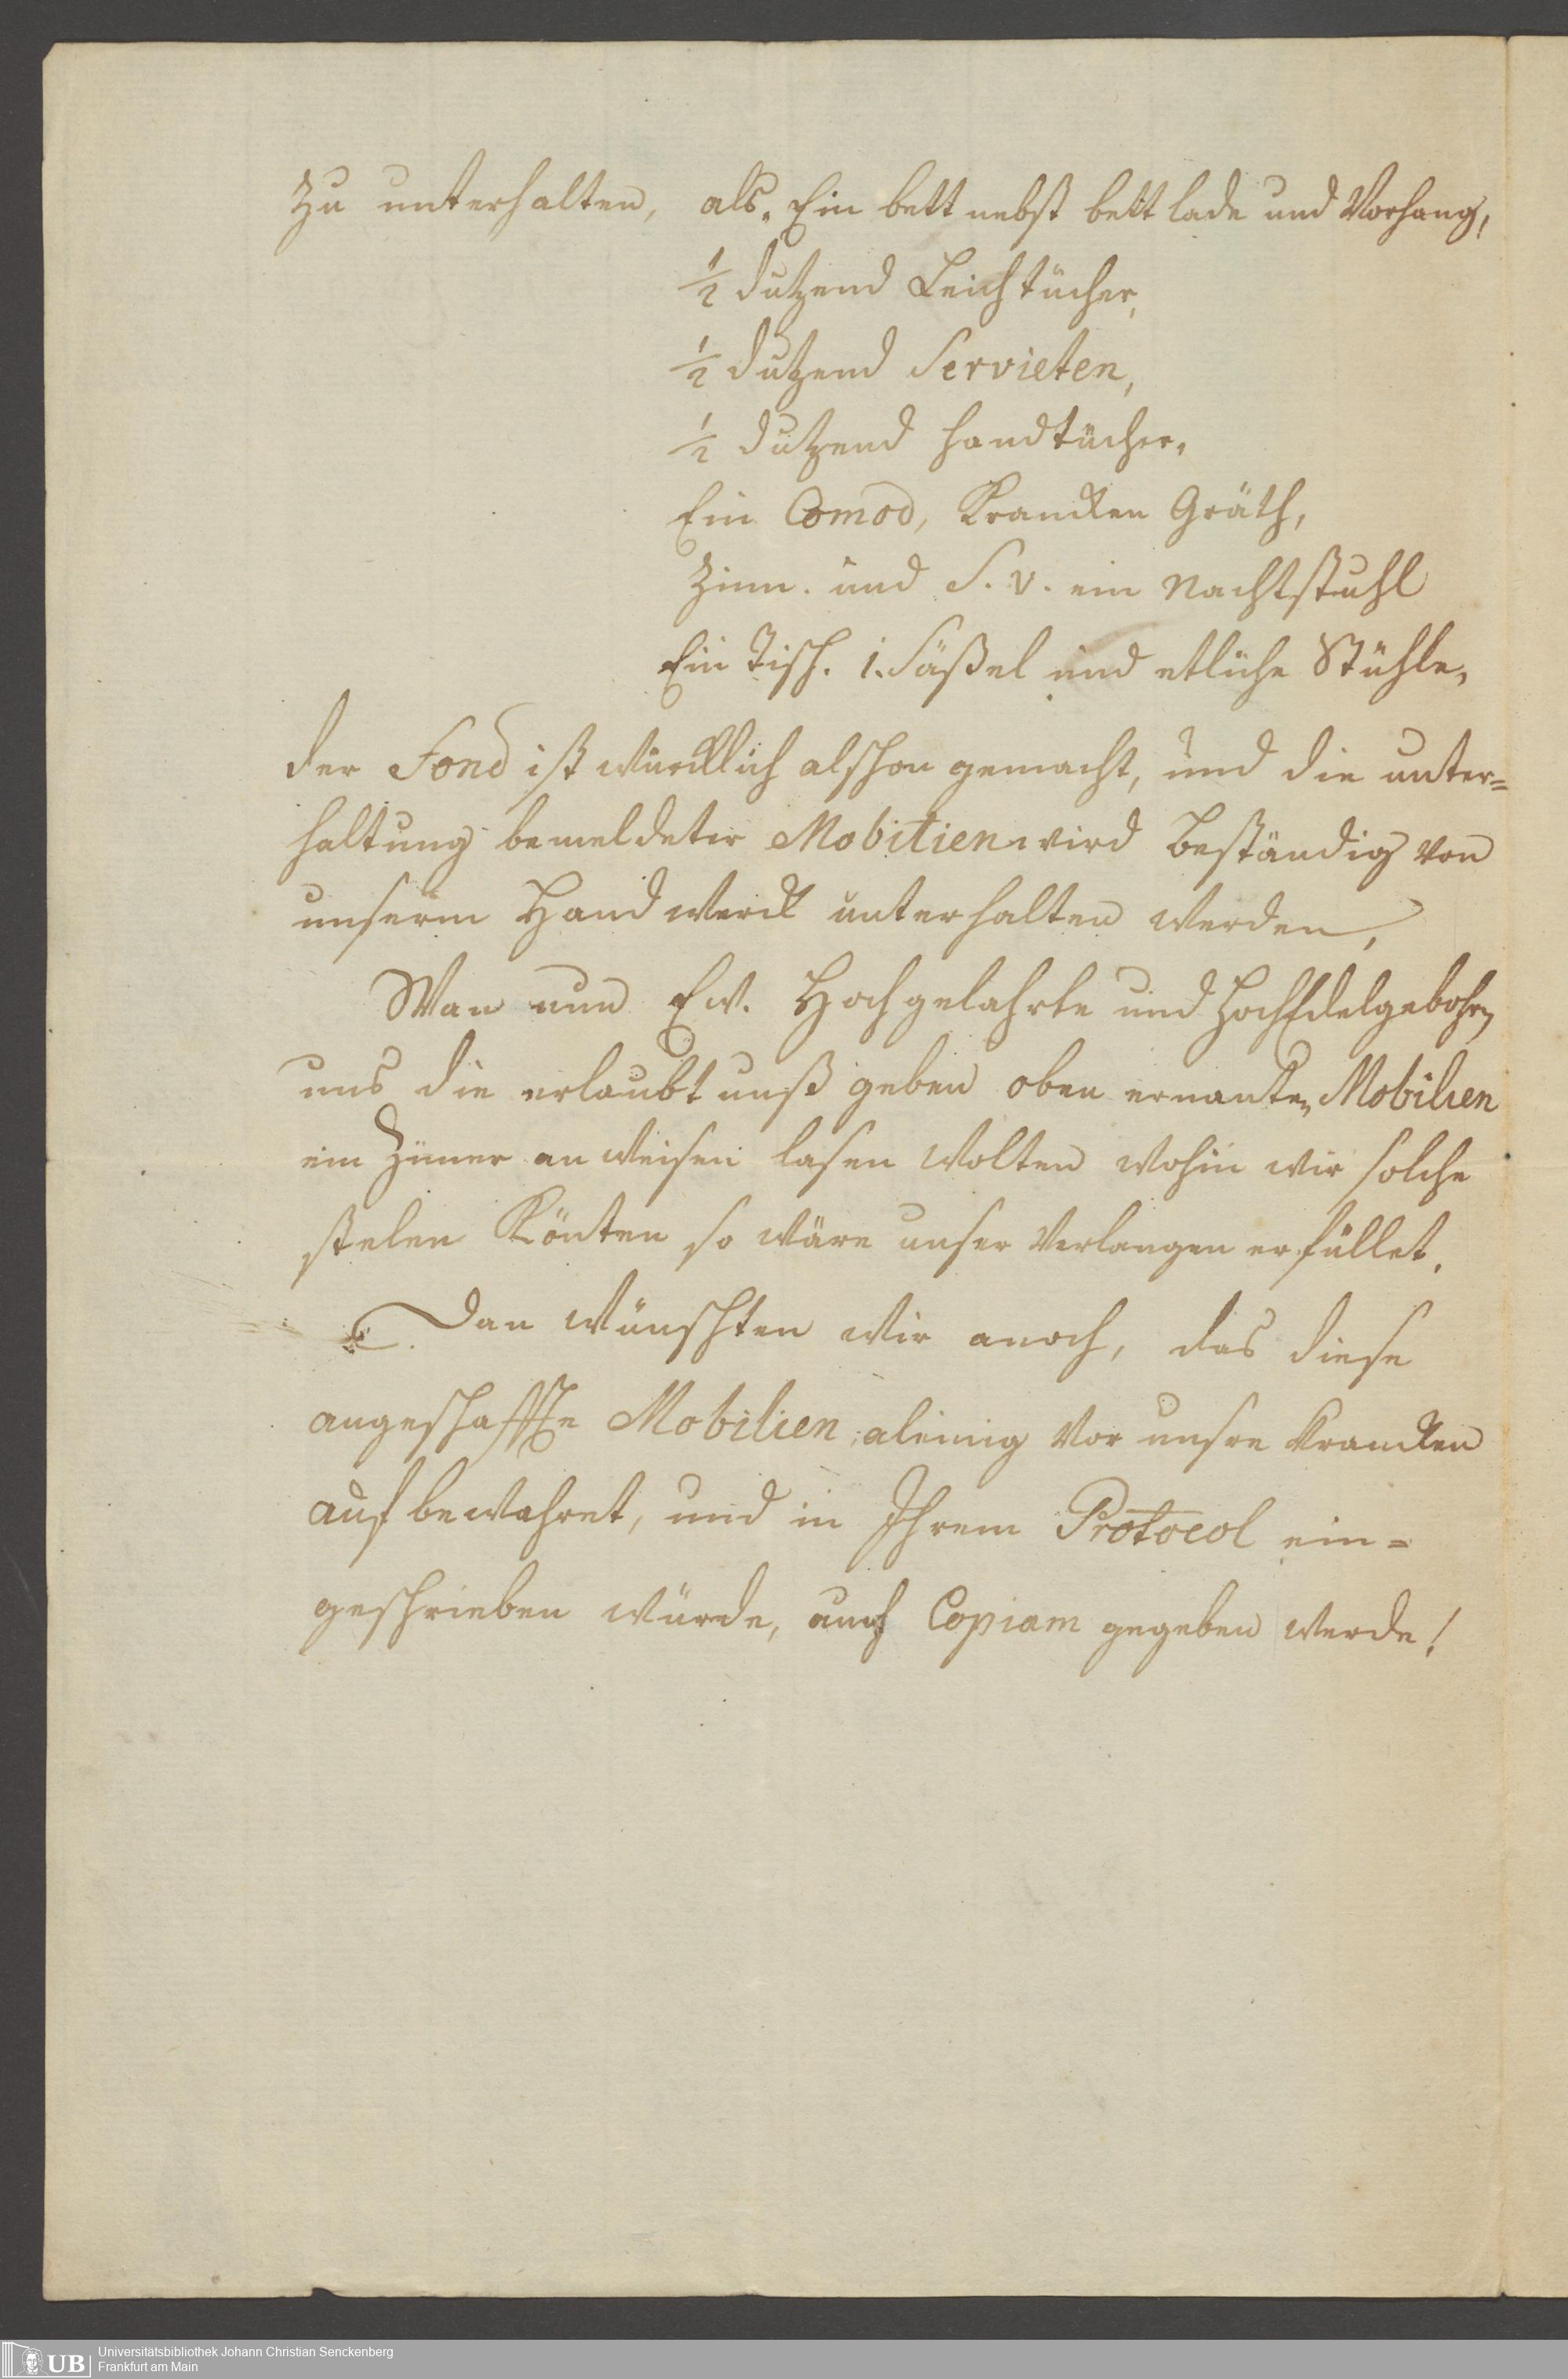 Zu unterhalten, als. Ein bett nebst bett lade und Vorhang,
½ dutzend Leichtücher,
½ dutzend Servieten,
½ dutzend handtücher,
Ein Comod, Krancken Gräth,
Zinn. und S. v. ein Nachtstuhl
Ein Tisch. 1. Säßel und etliche Stühle,
der Fond ist würcklich alschon gemacht, und die unter=
haltung bemeldeter Mobilien wird beständig von
unserm Handwerck unterhalten werden,
Wan nun Ew. Hochgelahrte und HochEdelgebohrn
uns die erlaubtnuß geben oben ernanten Mobilien
ein Zimer anweisen lasen wolten wohin wir solche
stelen Könten so wäre unser Verlangen erfüllet.
Dan wünschten wir anoch, das diese
angeschaffte Mobilien aleinig vor unsre Krancken
aufbewahret, und in Ihrem Protocol ein=
geschrieben würde, auch Copiam gegeben werde!
UB
Universitätsbibliothek Johann Christian Senckenberg
Frankfurt am Main